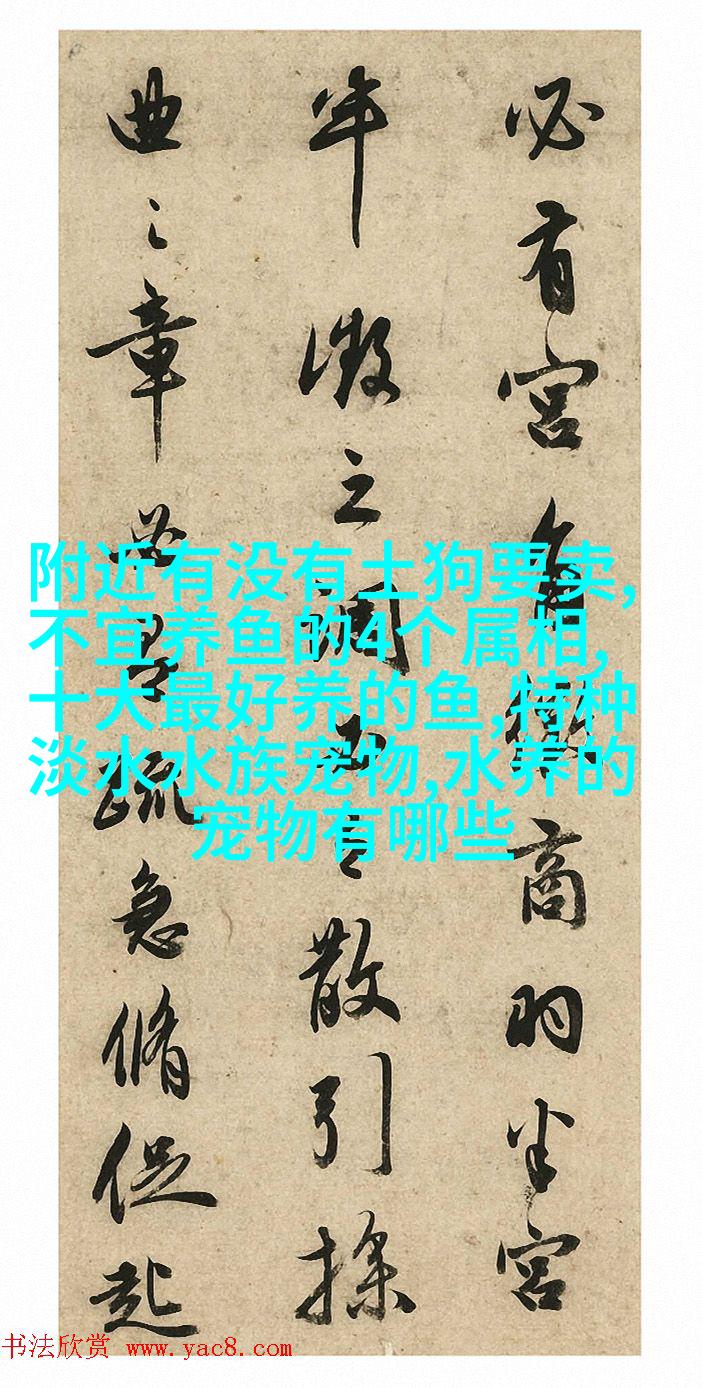 必有宮商羽半宮
半徵之調散引操
曲之章疏急脩促起
附近有没有土狗要卖,
不宜养鱼的4个属相,
十大最好养的鱼,特种
淡水水族宠物,水养的
宠物有哪些
书法欣赏 www.yac8.com